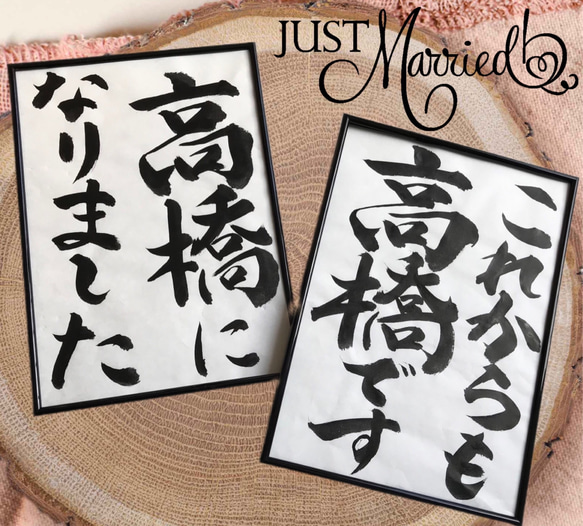 JUST Married
高橋に
なりました
これからも
高橋です